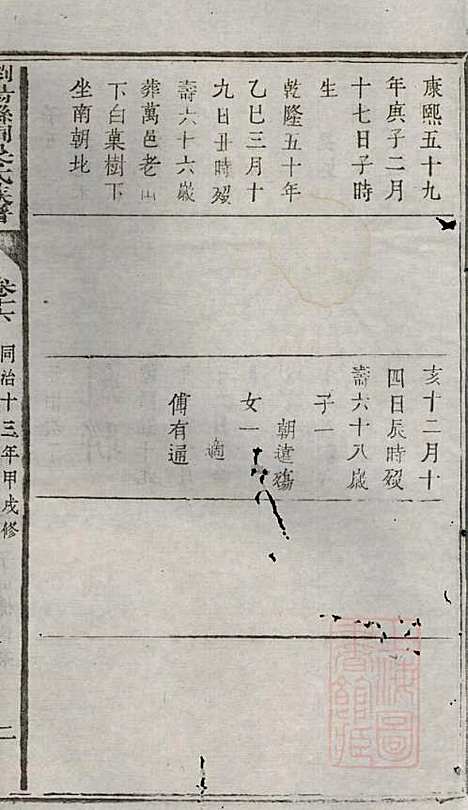 康熙五十九
年庚子二月
十七日子時
生
乾隆五十年
乙巳三月十
九日丑時歿
壽六十六歲
葬萬邑老山
下白菓樹下
坐南朝北
亥十二月十
四日辰時歿
壽六十八歲
子一
朝達殤
女一
適
傅有通
卷十六
同治十三年甲戌修
二
上海圖書館藏